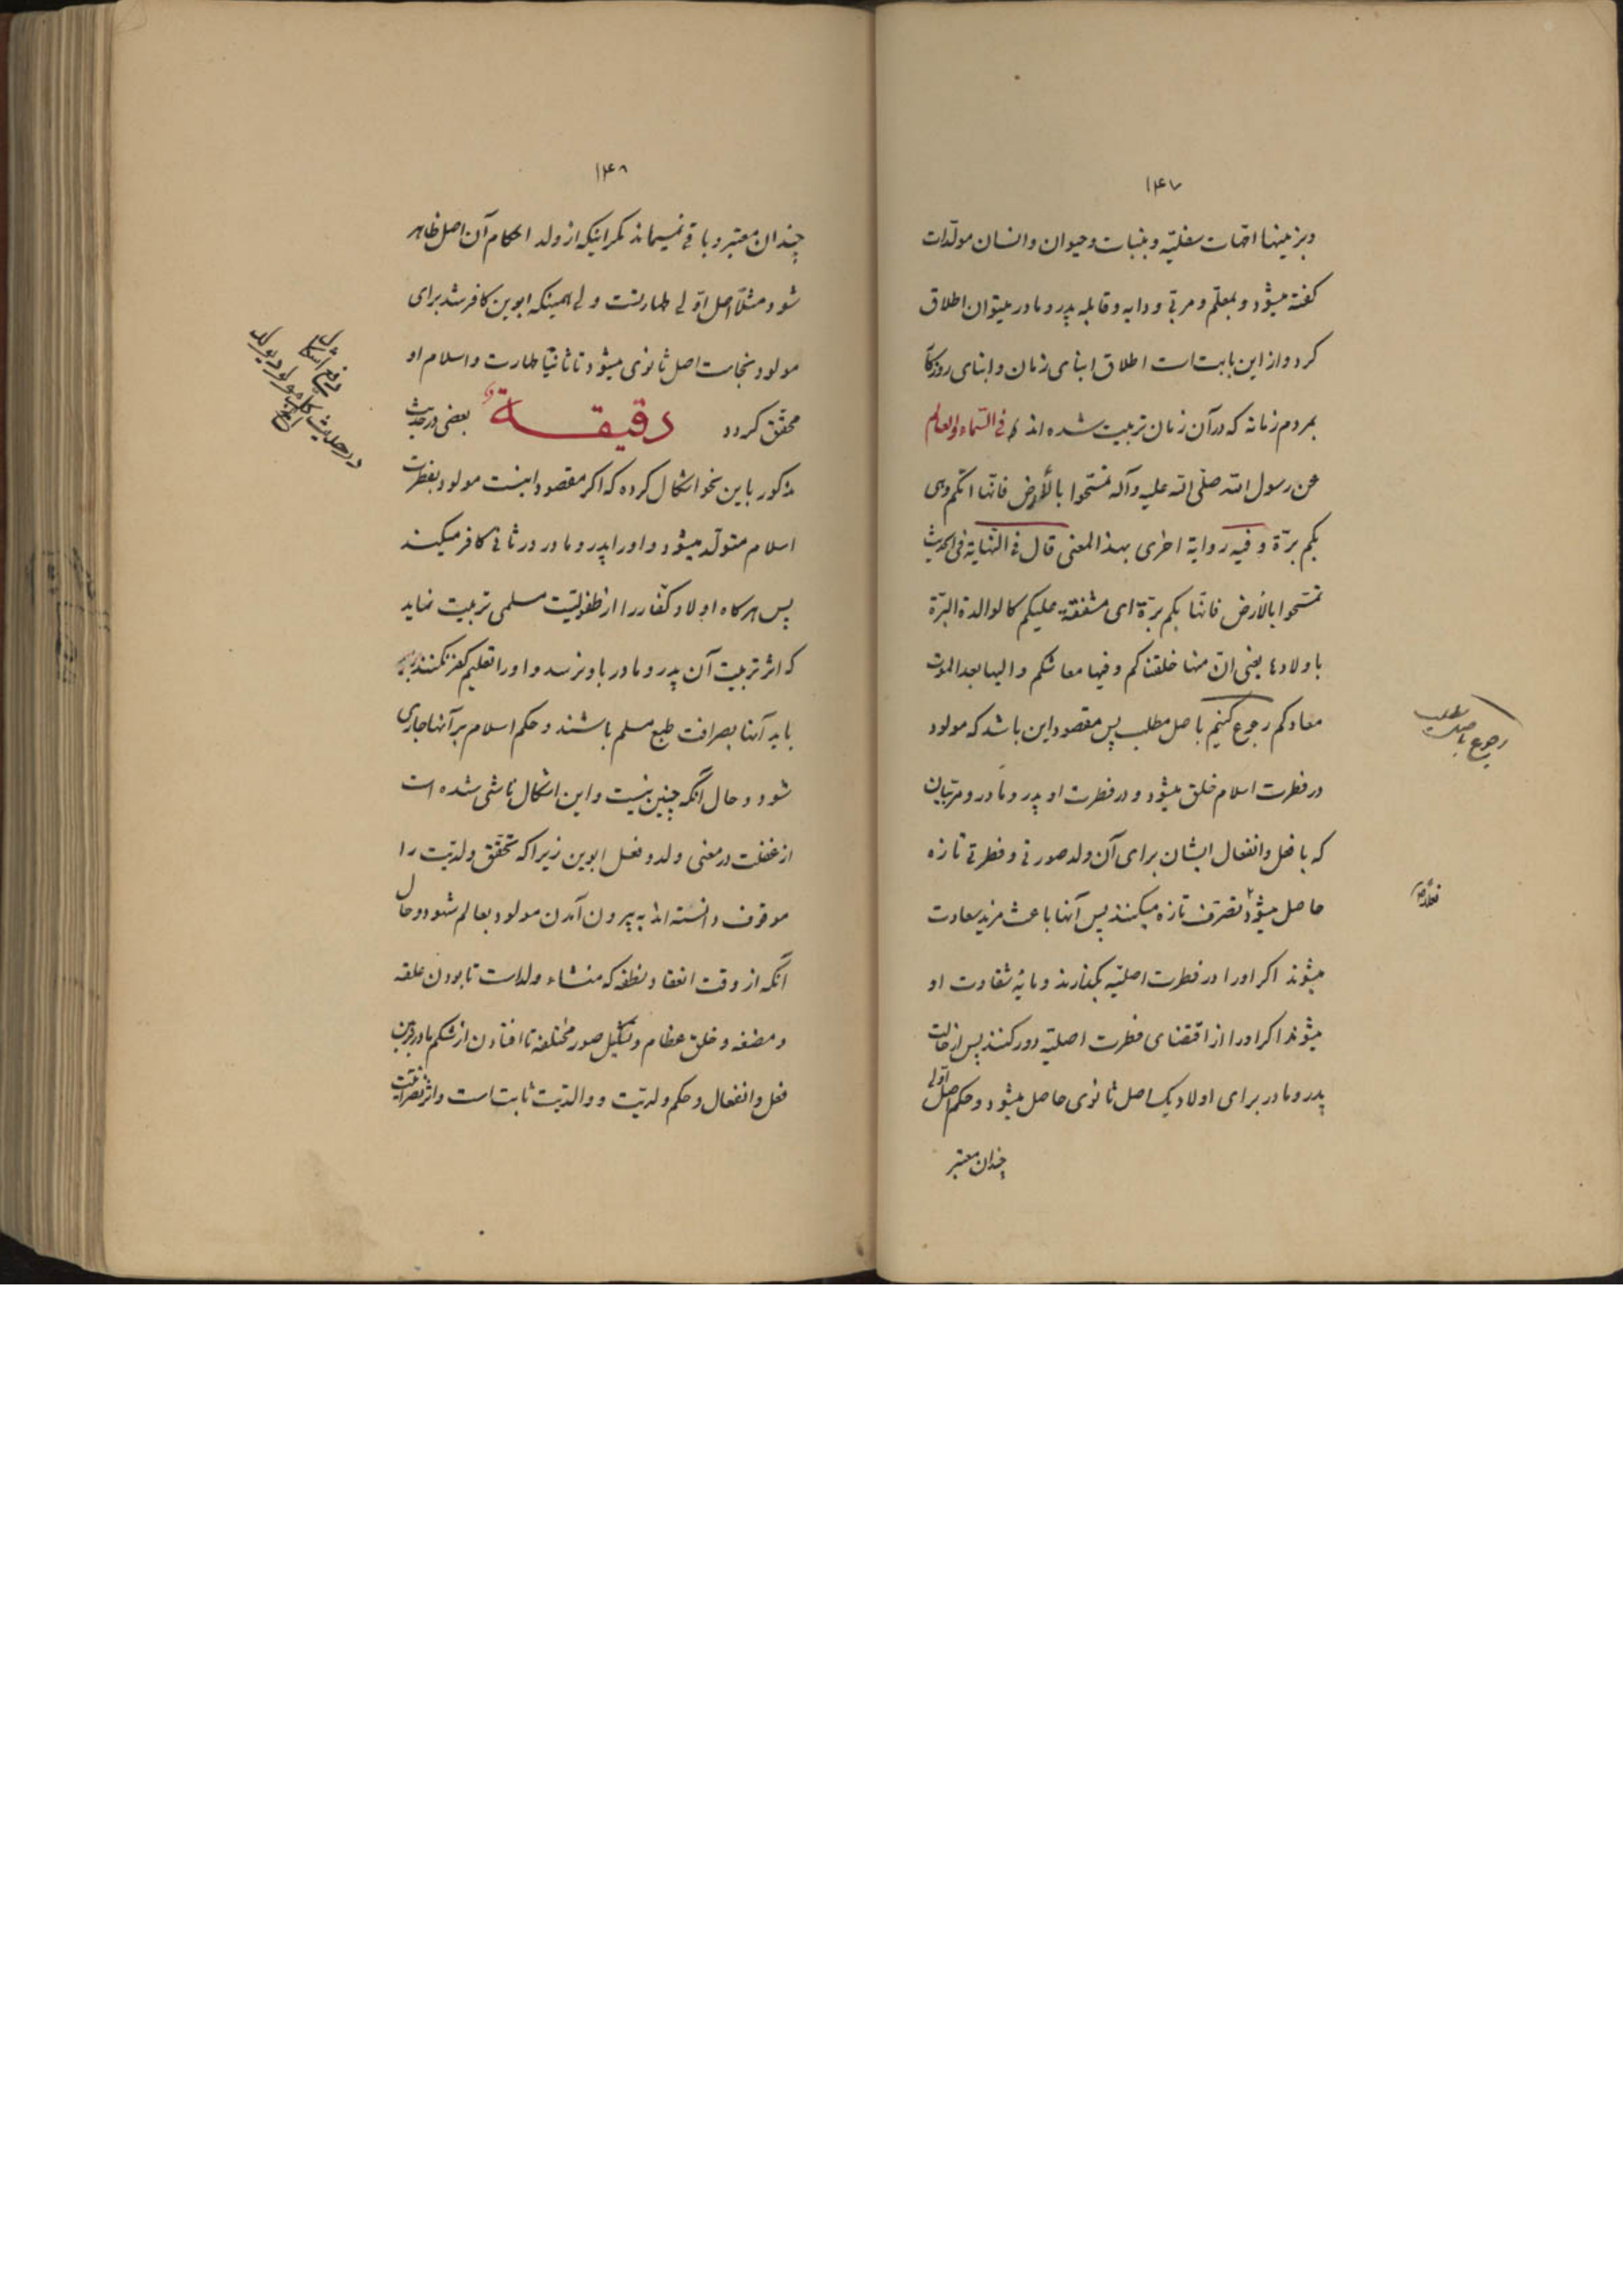 ۱۴۷
و بزمینها امّهات سفلیّه و بنبات و حیوان و انسان مولّدات
گفته میشود و بمعلّم و مربّی و دایه و قابله پدر و مادر میتوان اطلاق
کرد و از این بابت است اطلاق ابنای زمان و ابنای روزگار
بمردم زمانه که در آن زمان تربیت شده اند فی السّماء والعالم
عن رسول الله صلّی الله علیه وآله تمسّحوا بالأرض فانّها امّکم وهی
بکم برّة وفیه روایة اخری بهذا المعنی قال فی النّهایة فی الحدیث
تمسّحوا بالأرض فانّها بکم برّة ای مشفقة علیکم کالوالدة البرّة
باولادها یعنی انّ منها خلقناکم وفیها معاشکم والیها بعد الموت
معادکم رجوع کنیم باصل مطلب پس مقصود این باشد که مولود
رجوع باصل مطلب
در فطرت اسلام خلق میشود و در فطرت او پدر و مادر و مربّیان
که با فعل و انفعال ایشان برای آن ولد صورتی و فطرتی تازه
حاصل میشود تصرّف تازه میکنند پس آنها باعث مزید سعادت
میشوند اگر او را در فطرت اصلیّه بگذارند و مایه شقاوت او
میشوند اگر او را از اقتضای فطرت اصلیّه دور کنند پس از حالت
پدر و مادر برای اولاد یک اصل ثانوی حاصل میشود و حکم اصل اوّلی
چندان معتبر
۱۴۸
چندان معتبر و باقی نمیماند مگر اینکه از ولد احکام آن اصل ظاهر
شود مثلا اصل اوّلی طهارتست ولی همینکه ابوین کافر شد برای
مولود نجاست اصل ثانوی میشود تا ثانیّا طهارت و اسلام او
محقّق گردد دقیقة بعضی در حدیث
دفع اشکال
در حدیث کل مولود یولد
مذکور باین نحو اشکال کرده که اگر مقصود اینست مولود بفطرت
اسلام متولّد میشود و او را پدر و مادر در ثانی کافر میکنند
پس هرگاه اولاد کفّار را از طفولیّت مسلمی تربیت نماید
که اثر تربیت آن پدر و مادر باو نرسد و او را تعلیم کفر نکنند
باید آنها بصرافت طبع مسلم باشند و حکم اسلام بر آنها جاری
شود و حال آنکه چنین نیست و این اشکال ناشی شده است
از غفلت در معنی ولد و فعل ابوین زیرا که تحقّق ولدیّت را
موقوف دانسته اند به بیرون آمدن مولود بعالم شهود و حال
آنکه از وقت انعقاد نطفه که منشاء ولد است تا بودن علقه
و مضغه و خلق عظام و تشکیل صور مختلفه تا افتادن از شکم مادر
فعل و انفعال و حکم ولدیّت و والدیّت ثابت است و اثر